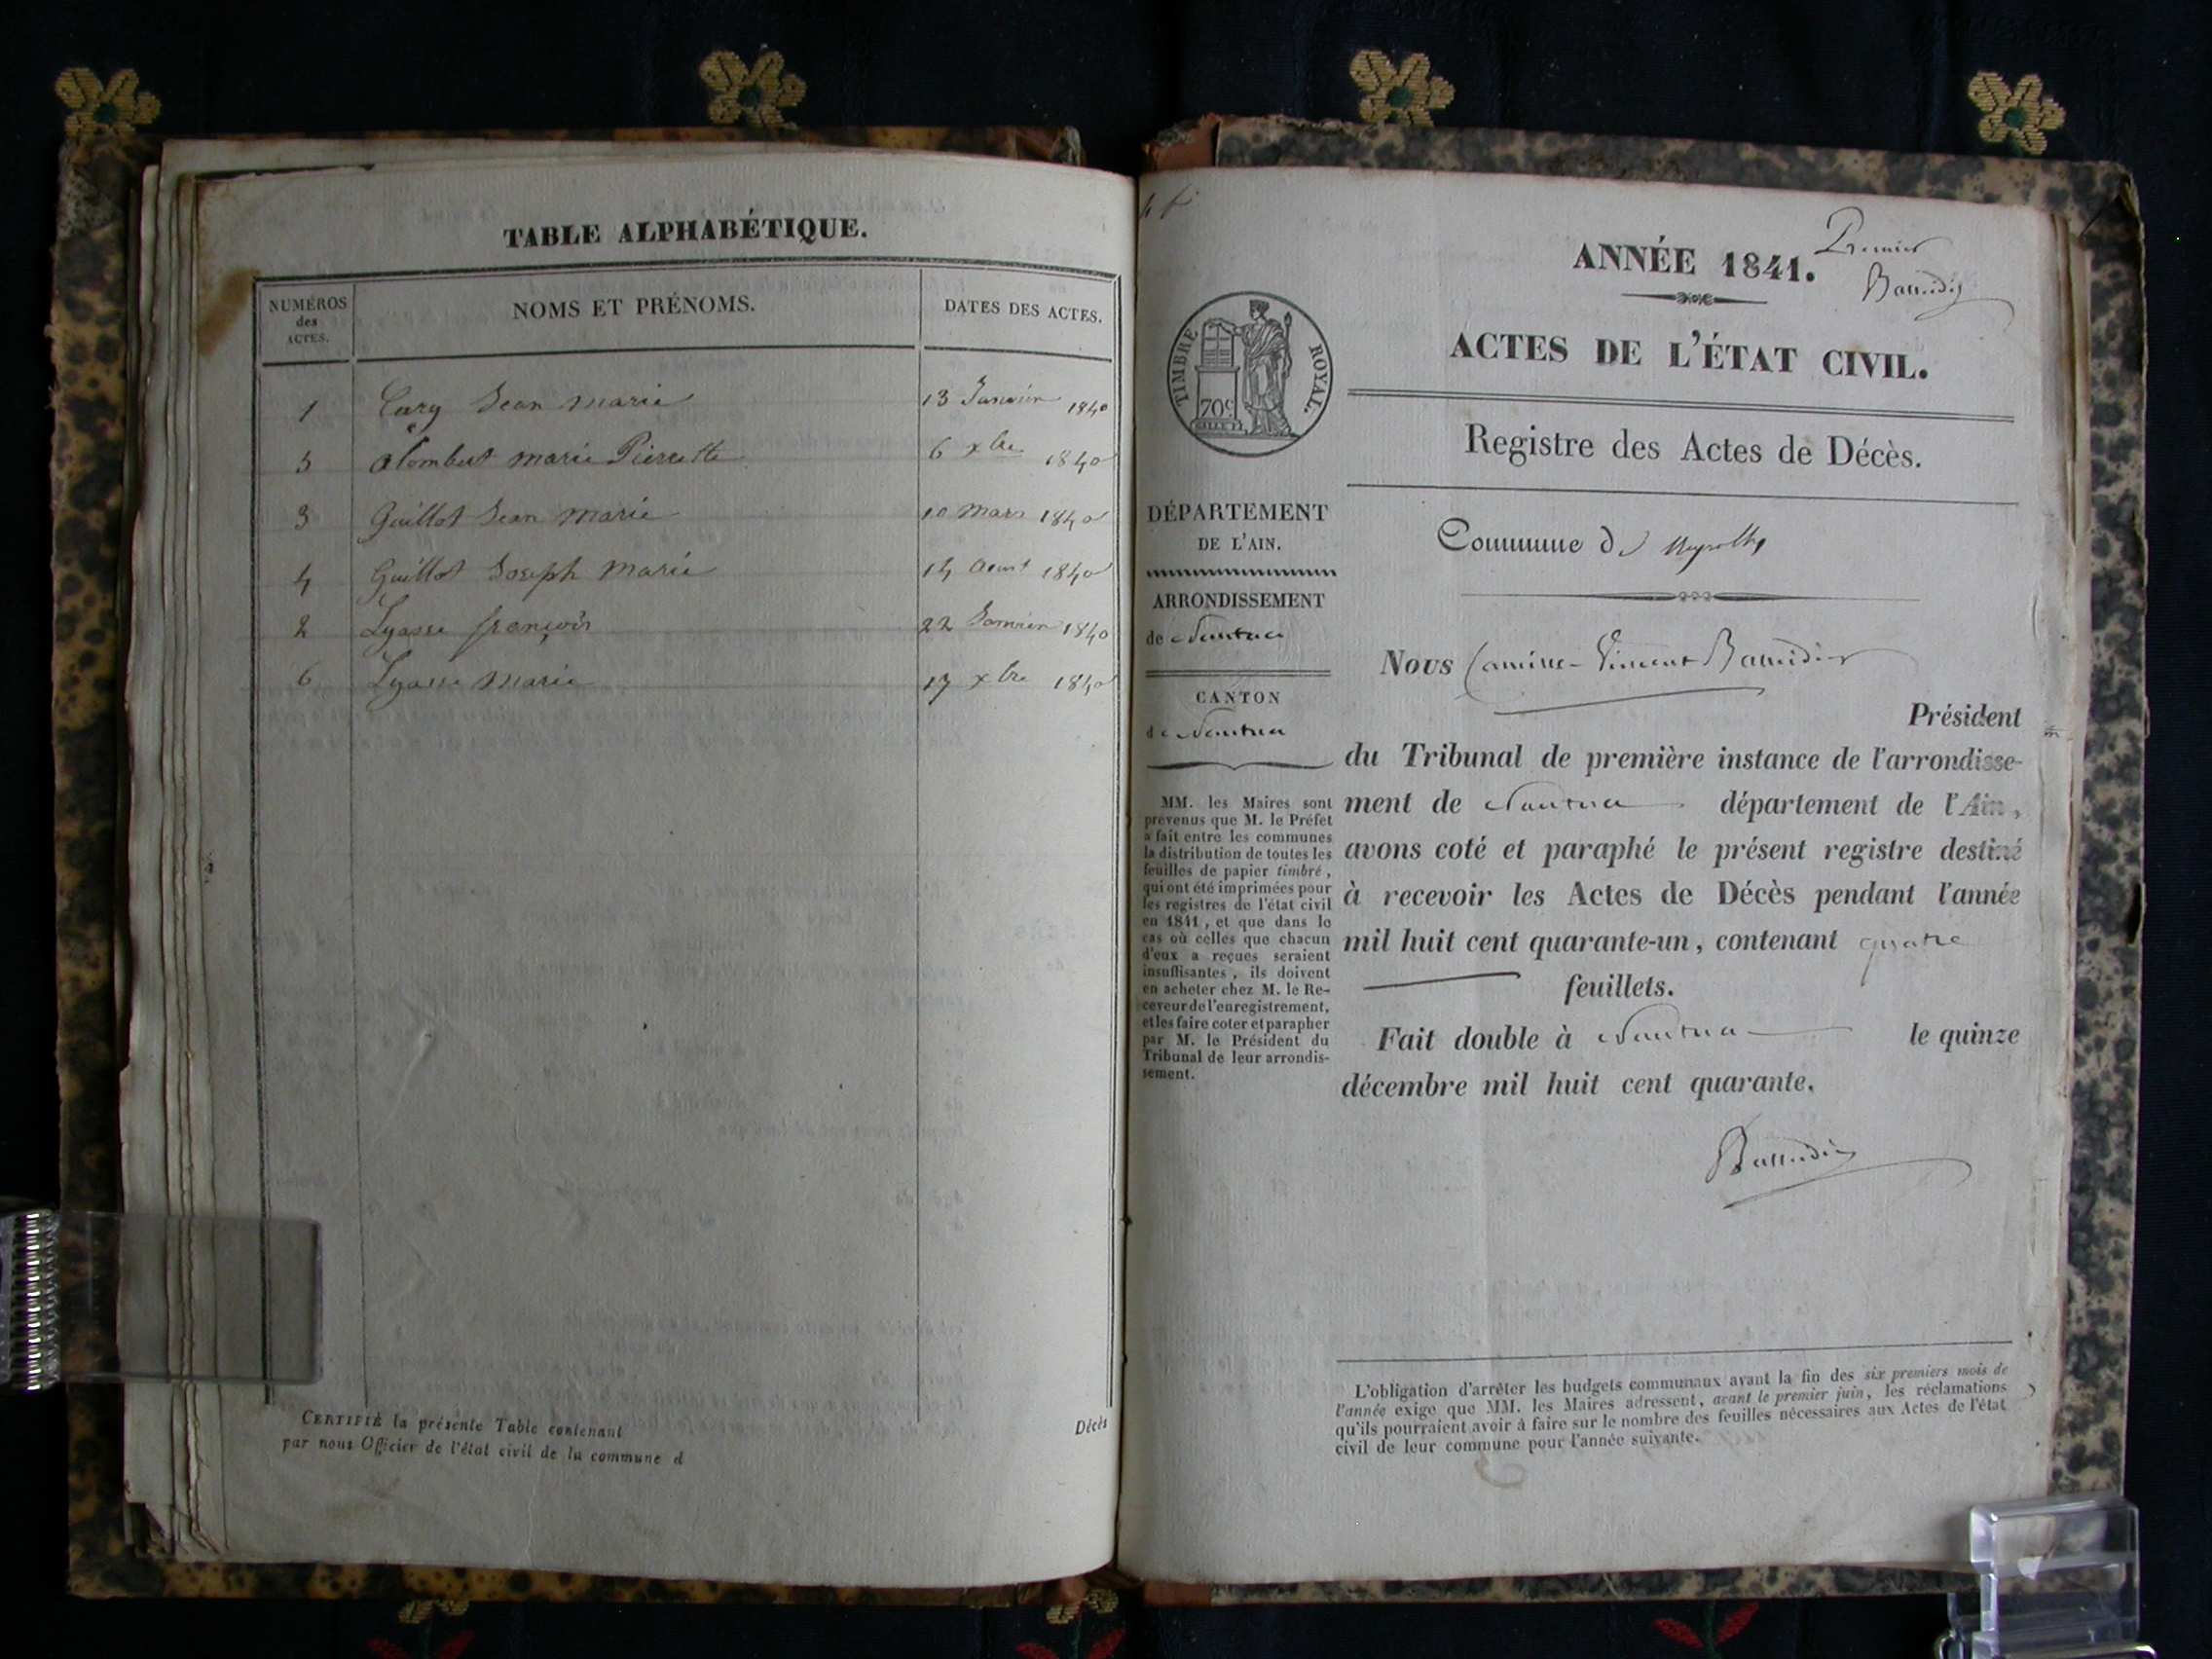 TABLE ALPHABÉTIQUE.
NUMÉROS des ACTES.
NOMS ET PRÉNOMS.
DATES DES ACTES.
1 Cary Jean marie 13 Janvier 1840
5 alombert marie Pierrette 6 xbre 1840
3 Guillot Jean marie 10 mars 1840
4 Guillot Joseph marie 14 aout 1840
2 Lyasse françois 22 Janvier 1840
6 Lyasse marie 17 xbre 1840
CERTIFIÉ la présente Table contenant
par nous Officier de l'état civil de la commune d
Décès
ANNÉE 1841.
Premier
ACTES DE L'ÉTAT CIVIL.
TIMBRE ROYAL.
70c
Registre des Actes de Décès.
DÉPARTEMENT
DE L'AIN.
ARRONDISSEMENT
de Nantua
CANTON
de Nantua
MM. les Maires sont
prévenus que M. le Préfet
a fait entre les communes
la distribution de toutes les
feuilles de papier timbré,
qui ont été imprimées pour
les registres de l'état civil
en 1841, et que dans le
cas où celles que chacun
d'eux a reçues seraient
insuffisantes, ils doivent
en acheter chez M. le Re-
ceveur de l'enregistrement,
et les faire coter et parapher
par M. le Président du
Tribunal de leur arrondis-
sement.
Commune de
Nous Camille-Vincent
Président
du Tribunal de première instance de l'arrondisse-
ment de Nantua département de l'Ain,
avons coté et paraphé le présent registre destiné
à recevoir les Actes de Décès pendant l'année
mil huit cent quarante-un, contenant quatre
feuillets.
Fait double à Nantua le quinze
décembre mil huit cent quarante.
L'obligation d'arrêter les budgets communaux avant la fin des six premiers mois de
l'année exige que MM. les Maires adressent, avant le premier juin, les réclamations
qu'ils pourraient avoir à faire sur le nombre des feuilles nécessaires aux Actes de l'état
civil de leur commune pour l'année suivante.